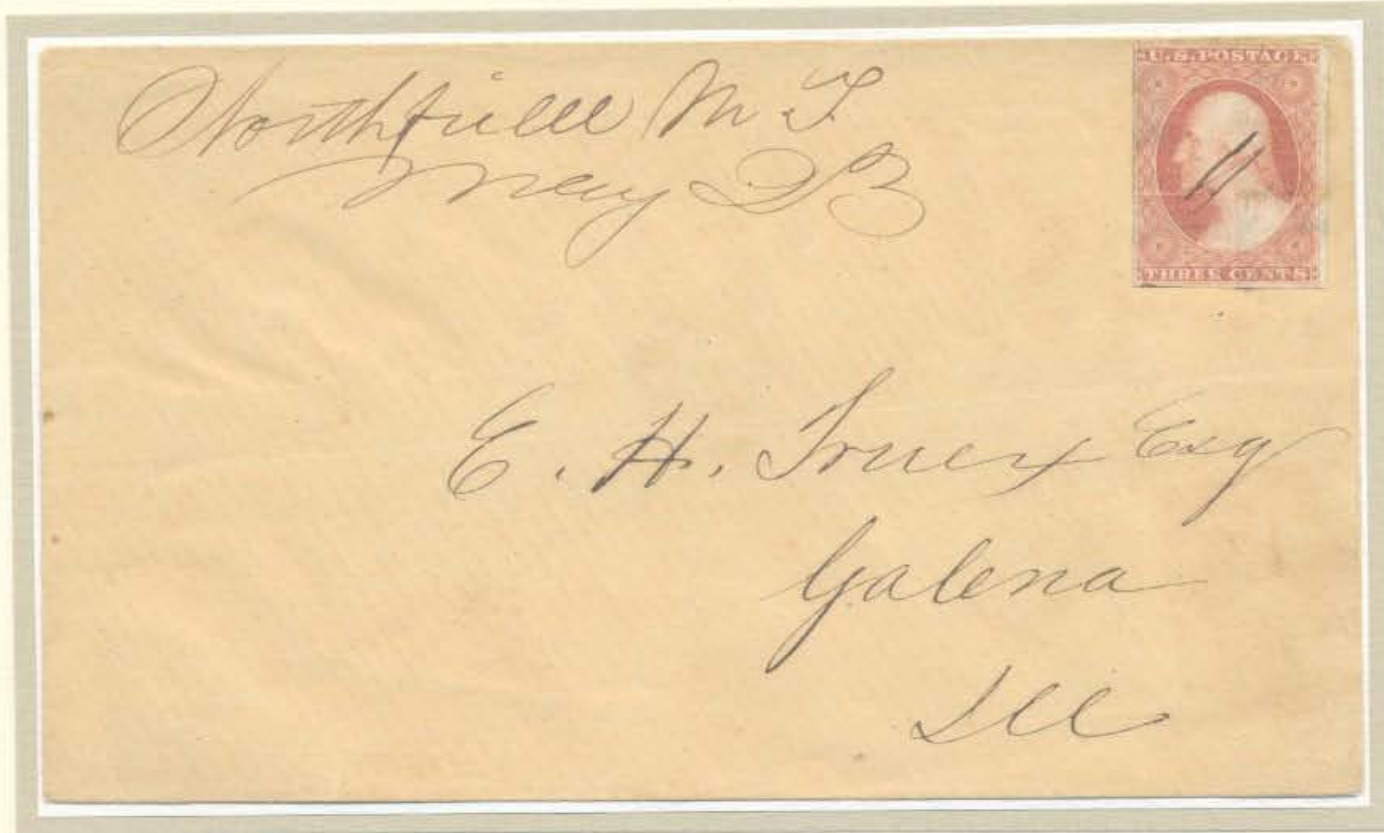 Northfield M.T.
May 23
U.S. POSTAGE
THREE CENTS
E. H. Truex Esq
Galena
Ill